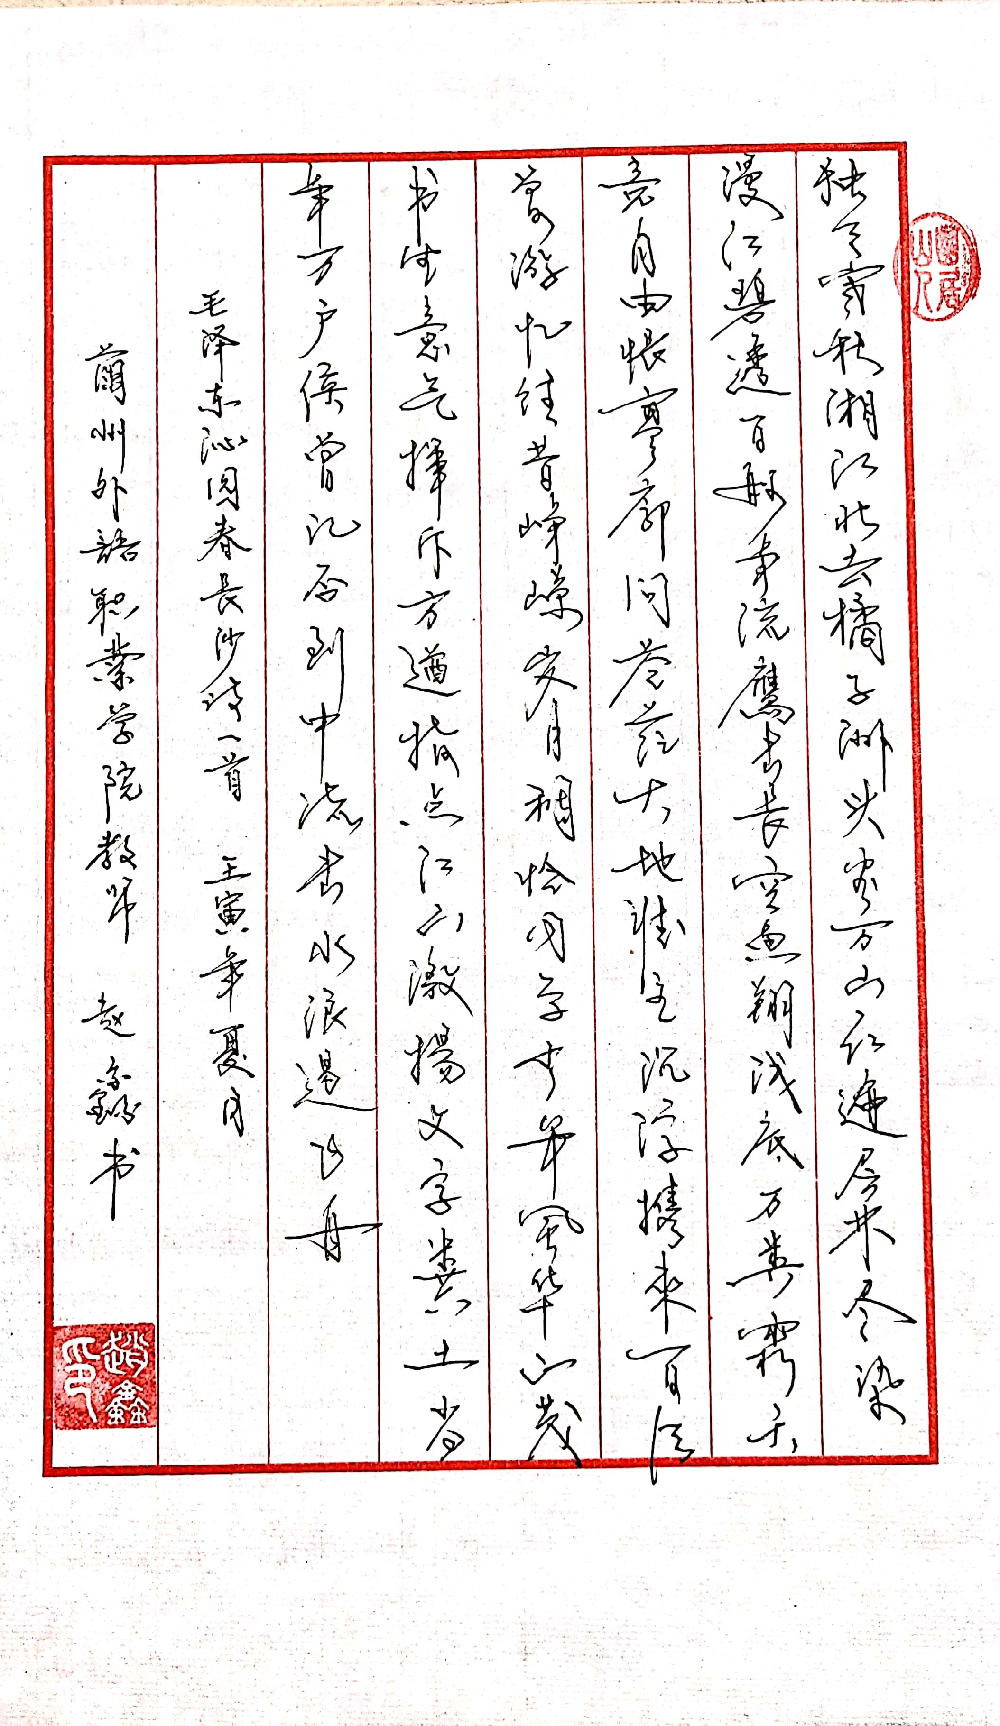 独立寒秋湘江北去橘子洲头看万山红遍层林尽染
漫江碧透百舸争流鹰击长空鱼翔浅底万类霜天
竞自由怅寥廓问苍茫大地谁主沉浮携来百侣
曾游忆往昔峥嵘岁月稠恰同学少年风华正茂
书生意气挥斥方遒指点江山激扬文字粪土当
年万户侯曾记否到中流击水浪遏飞舟
毛泽东沁园春长沙诗一首 壬寅年夏月
兰州外語职業学院教师 赵鑫书
趙鑫印